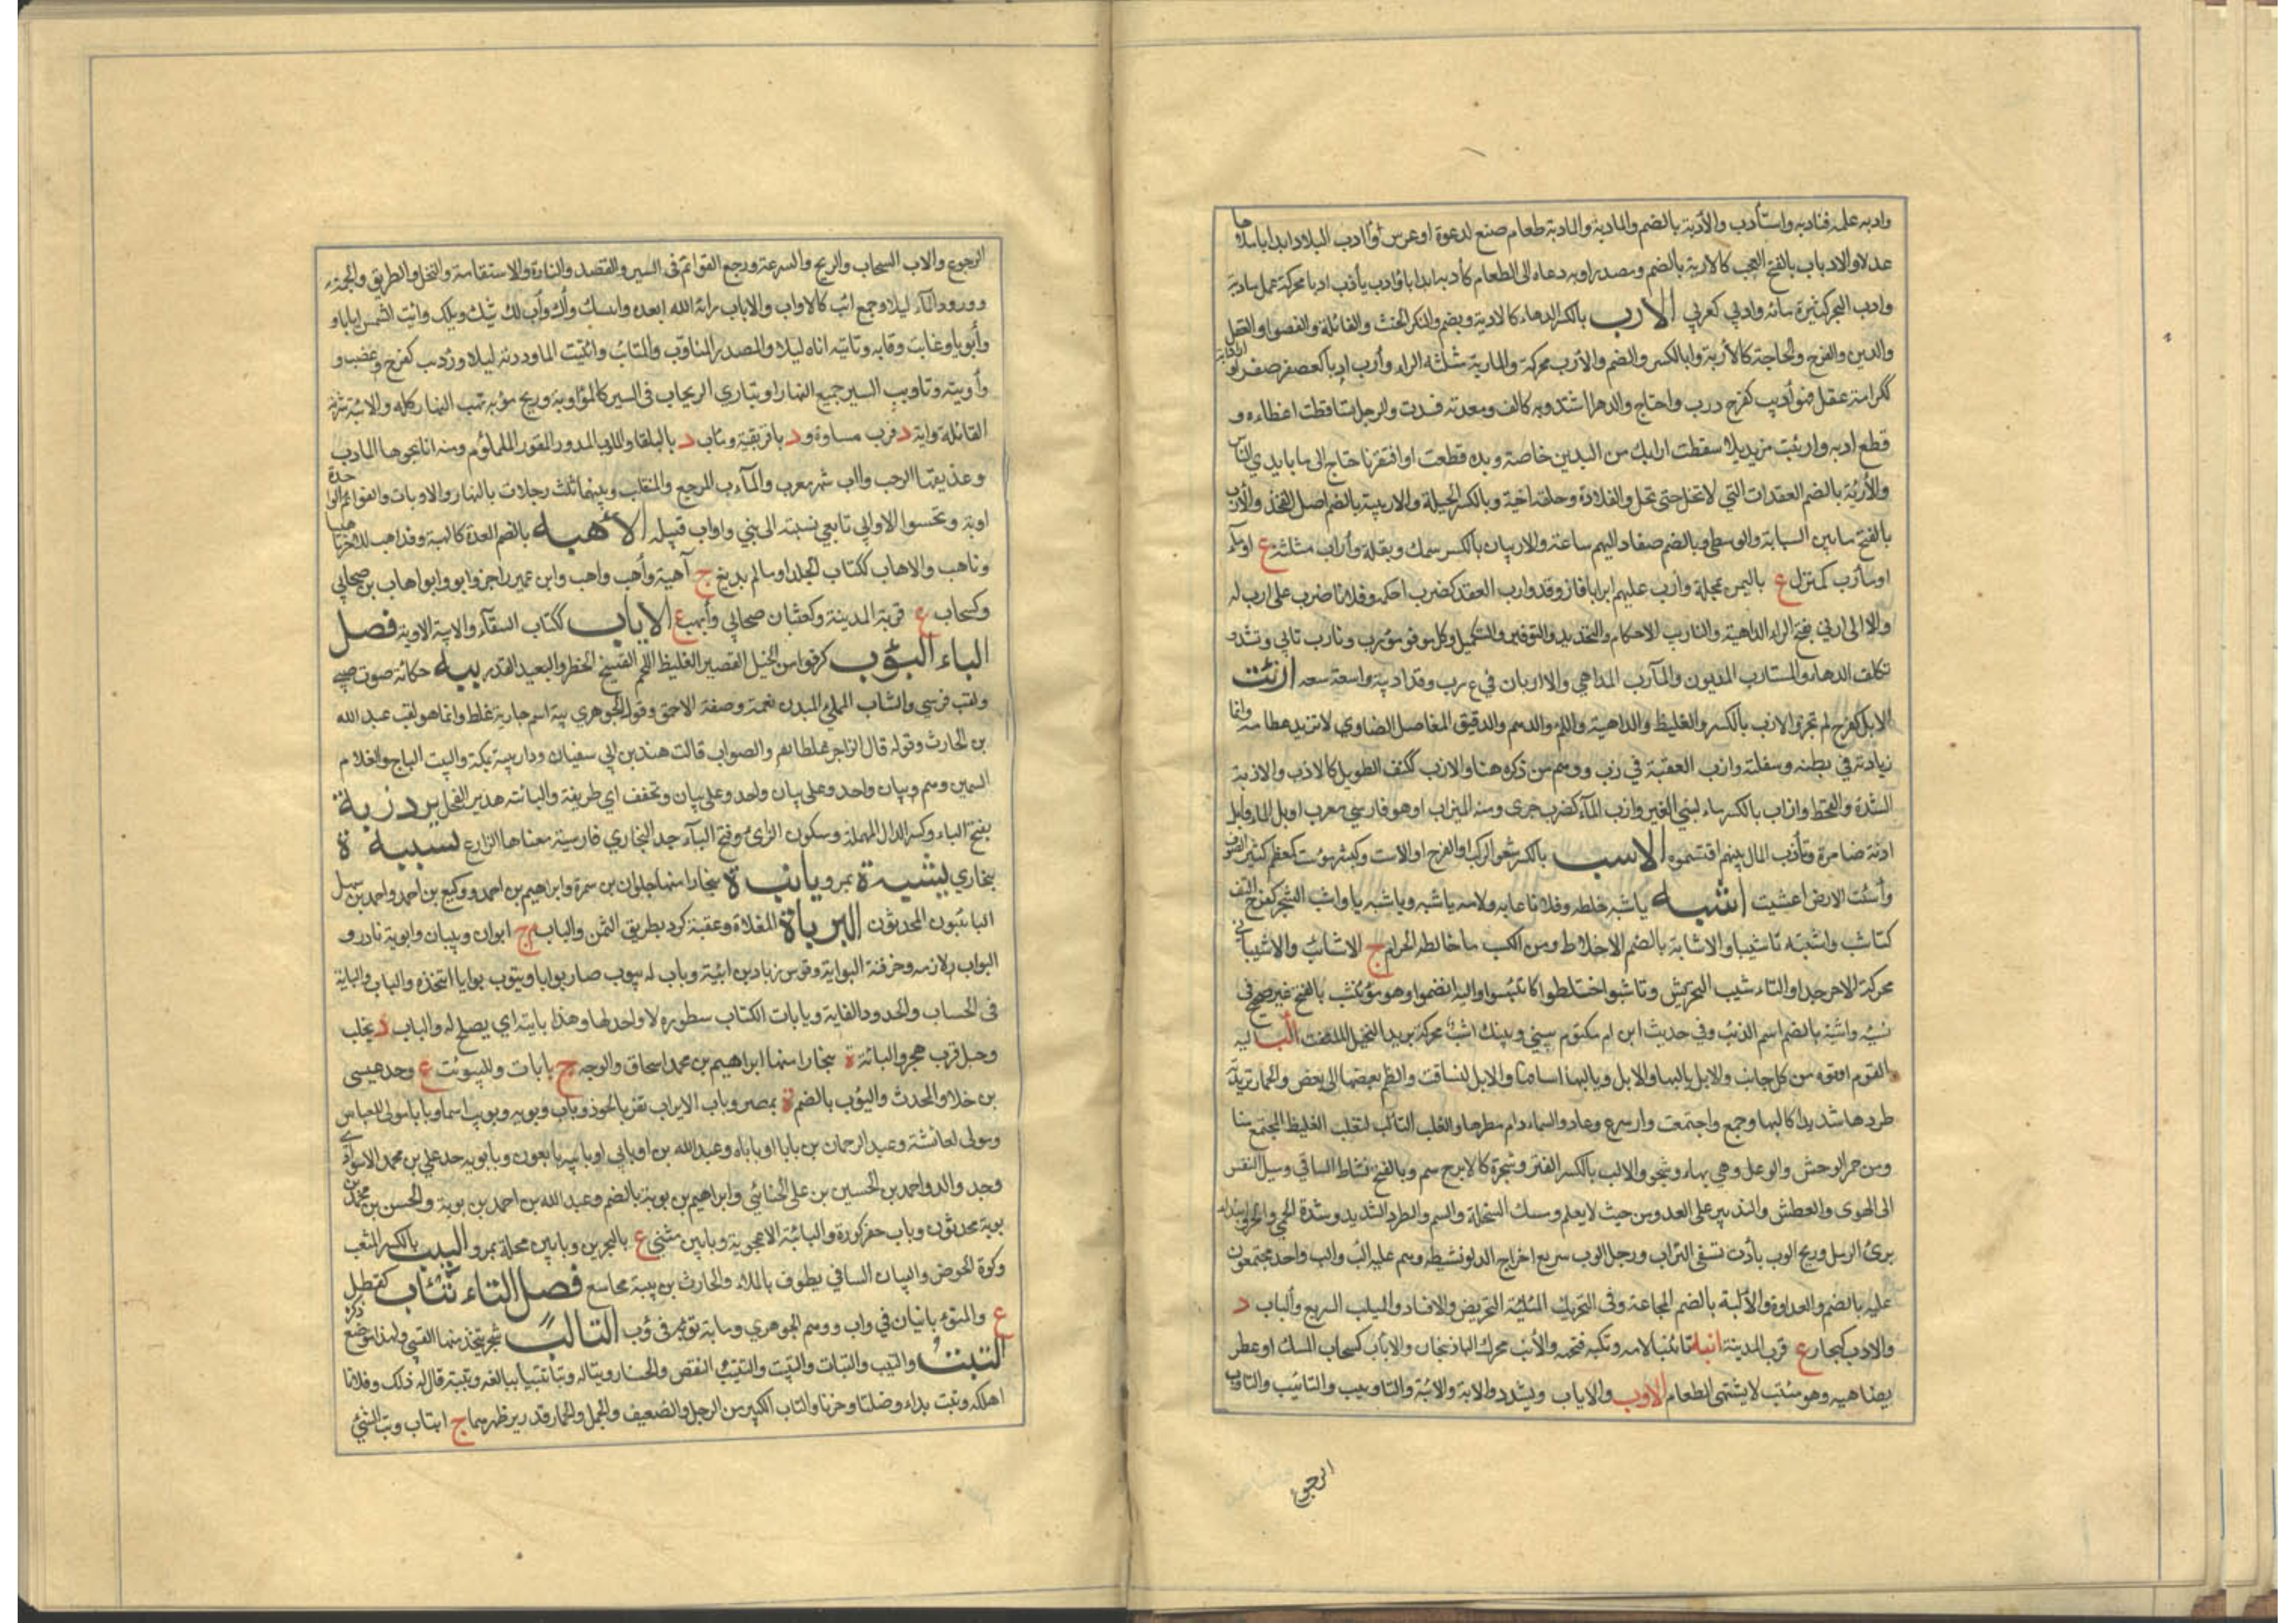 وادبه علمه فتادبه واستأدب والأدبة بالضم والمادبة والمادبة طعام صنع لدعوة او عرس وأادب البلاد ايدابا ملاها
عدلا والادباب بالفتح العجب كالادبة بالضم ومصدر اوبه دعاه الى الطعام كأدبه ايدابا وادب يأدب ادبا محركة عمل مادبة
وادب البحر كثرة مائه وادبي كعربي الارب بالكسر الدهاء كالاربة ويضم والنكر الخبث والغائلة والعضو والعقل
والدين والفرج والحاجة كالأربة وابالكسر والضم والأرب محركة والماربة مثلثه الراء وأرب اربا كصغر صغرا
ككرامة عقل فهو أريب كفرح درب واحتاج والدهر اشتد وبه كالف ومعدته فسدت والرجل تساقطت اعضاءه و
قطع اربه واربت من يديك سقطت ارابك من اليدين خاصة ويده قطعت او افتقرنا حتاج الى ما بايدي الناس
والأربة بالضم العقدات التي لا تنحل حتى تحل والقلادة وحلقة اخية وبالكسر الحيلة والاربية بالضم اصل الفخذ والأرب
بالفتح ما بين السبابة والوسطى وبالضم صغار البهم ساعة والاربيان بالكسر سمك وبقلة وأراب مثلثة ع او ماء
او مأرب كمنزل ع باليمن مملحة وأرب عليهم ايرابا فاز وقد وارب العقد كضرب احكمه وفلانا ضرب على ارب له
والاالى اربي بفتح الراء الداهية والتارب الاحكام والتحديد والتوفير والتكميل وكل موفر مؤرب وتارب تابي وتشدد
تكلف الدهاء والمستارب المديون والمآرب المداهي والاربان في ع رب وقد اربة واسعة سعه ازبت
الابل كفرح لم تجتر والازب بالكسر والغليظ والداهية واللؤم والدسم والدقيق المفاصل الضاوي لا تزيد عظامه وانما
زيادته في بطنه وسفلته وازب العقبة في زب ووهم من ذكره هنا والازب ككتف الطويل كالاذب والازبة
الشدة والقحط وازاب بالكسر ماء لبني العنبر وازب الماء كضرب جرى ومنه الميزاب او هو فارسي معرب او بل الماء وابل
ازبة ضامرة وتأزب المال بينهم اقتسموه الاسب بالكسر شعر الركب او الفرج او الاست وكبش مؤسب كمعظم كثير الصوف
وأسبت الارض اعشبت اشبه ياشبه خلطه وفلانا عابه ولامه ياشبه وياشبه يا واشب الشجر كفرح التف
كتاشب واشبته تاشيبا والاشابة بالضم الاخلاط ومن الكسب ما خالطه الحرام ج الاشائب والاشيبا
محركة الاحمر جدا والتاء شيب التحريش وتاشبوا اختلطوا كائتشبوا واليه انضموا وهو مؤتشب بالفتح غير صريح في
نسبه واشبة بالضم اسم الذئب وفي حديث ابن ام مكتوم بيني وبينك اشب محركة يريد النخيل الملتفة الب اليه
القوم اتوه من كل جانب والابل يالبها والابل ويالبها ساقها والابل انساقت وانظم بعضها الى بعض والحمار تريدته
طردها شديدا كالبها وجمع واجتمعت واسرع وعاد والسماء دام مطرها والقلب التالب لقلب الغليظ المجتمع منا
ومن حمر الوحش والوعل وهي بهاء وشجر والالب بالكسر الفتر وشجرة كالاترج سم وبالفتح نشاط الساقي وميل النفس
الى الهوى والعطش والتدبير على العدو من حيث لا يعلم ومسك السخلة والسم والطرد الشديد وشدة الحمي والحر وابتداء
برئ الدمل وريح الوب باردة تسفى التراب ورجل الوب سريع اخراج الدلو نشيط وهم عليه الب والب واحد مجتمعون
عليه بالضم والعداوة والألبة بالضم المجاعة وفي التحريك المسلبة التحريض والافساد والميلب السريع وألباب د
والادب كسحاب ع قرب المدينة انبه تانيبا لامه وبكته فتحه والأنب محرك الباذنجان والاناب كسحاب المسك او عطر
يضاهيه وهو مؤتنب لا يشتهي الطعام الاوب والاياب ويشدد والابة والابة والتاويب والتائيب والتاوب
الرجوع
الرجوع والاب السحاب والريح والسرعة ورجع القوائم في السير والقصد والعادة والاستقامة والنخل والطريق والجهة
وورود الماء ليلا وجمع ائب كالاواب والاياب رابه الله ابعده وابك وأب لك مثل ويلك وآبت الشمس ايابا و
وأيوبا وغابت وتابه وتاتيه اتاه ليلا والمصدر المتاوب والمتاب وائتبت الماء وردته ليلا وردب كفرح غضب و
وأوبته وتاويب السير جميع النهار او تباري الركاب في السير كالمؤاوبة وريح مؤوبة تهب النهار كله والائبة شربة
القائلة وابة د قرب ساوة ود بافريقية ومئاب د بالبلقا والماوب المدور المقور الململم ومنه انا جحوها المارب
وعذيقها المرجب وآب شهر معرب والمآب المرجع والمنقلب وبينهما ثلاث رجلات بالنهار والاوبات والقوائم الواحدة
اوبة ومحسوا الاوابي تابعي نسبة الى بني واواب قبيله الأهبة بالضم العدة كالهبة وقد اهب للامر تاهيبا
وتاهب والاهاب ككتاب الجلد او ما لم يدبغ ج آهبة وأهب واهب وابن عمير راجز وابو وابو اهاب بن صحابي
وكسحاب ع قرية المدينة وكعثبان صحابي وأيهب ع الاياب ككتاب السقاء والابة الاوبة فصل
الباء البؤب كزفر من الخيل القصير الغليظ اللحم الفسيح الخطو البعيد القدر ببه حكاية صوت صبي
ولقب قرشي والشاب الممتلئ البدن نعمة وصفة الاحمق وقول الجوهري ببة اسم جارية غلط وانما هو لقب عبد الله
بن الحارث وقوله قال الراجز غلط ايضا والصواب قالت هند بنت ابي سفيان ودار ببة بمكة والبب الباج والغلام
السمين وهم ببان واحد وعلى ببان واحد وعلى بيان وتخفف اي طريقة والبائنه هدير الفحل بردزبة
بفتح الباء وكسر الدال المهملة وسكون الزاي وفتح الباء جد البخاري فارسية معناها الزارع بسببه ة
بخاري بشبة ة بمرو يانبة ة بخارا منها جلوان بن سمرة وابراهيم بن احمد ووكيع بن احمد واحمد بن سهل
البانبيون المحدثون البوباة المفلاة وعقبة كرد بطريق اليمن والباب ج ابواب وبيبان وابوبة نادر و
البواب لازمه وحرفته البوابة وفرس زياد بن ابيه وباب له يبوب صار بوابا وتبوب بوابا اتخذه والباب والبابة
في الحساب والحدود الغاية وبابات الكتاب سطوره لا واحد لها وهذا بابته اي يصلح له والباب د بحلب
وجبل قرب هجر والبابة ة ببخارا منها ابراهيم بن محمد اسحاق والوجه ج بابات وللبيوبت ع وجد عيسى
بن خلاد المحدث والبوب بالضم ة بمصر وباب الابواب ثغر بالخزر وباب وبوبه وبوب اسماء وبابا مولى للعباس
ومولى لعائشة وعبد الرحمان بن بابا او باباه وعبد الله بن او بابي او بابيه تابعون وبابويه جد علي بن محمد الاسواري
وجد والد احمد بن الحسين بن علي الحنائي وابراهيم بن بوبة بالضم وعبد الله بن احمد بن بوبة والحسن بن محمد بن
بوبة محدثون وباب حفر كورة والبابية الاعجوبة وبابين مثني ع بالبحرين وبابين محلة بمرو البيب بالكسر المثعب
وكوة الحوض والبياب الساقي يطوف بالماء والحارث بن بيبة مجاشع فصل التاء تتئاب كفعلل
ع والمتوء بانيان في واب ووهم الجوهري ومابه توبة في ؤب التالب شجر يتخذ منها القسي ولهذا موضع ذكره
التبتُ والتبب والتباب والتبت والتتبيب النقص والخسار وتباله وتبا تتبيبا مبالغه وتببة قال له ذلك وفلانا
اهلكه وتبت يداه وضلتا وخسرنا والتاب الكبير من الرجل والضعيف والجمل والحمار قد دبر ظهرهما ج اتباب وتب الشيئ